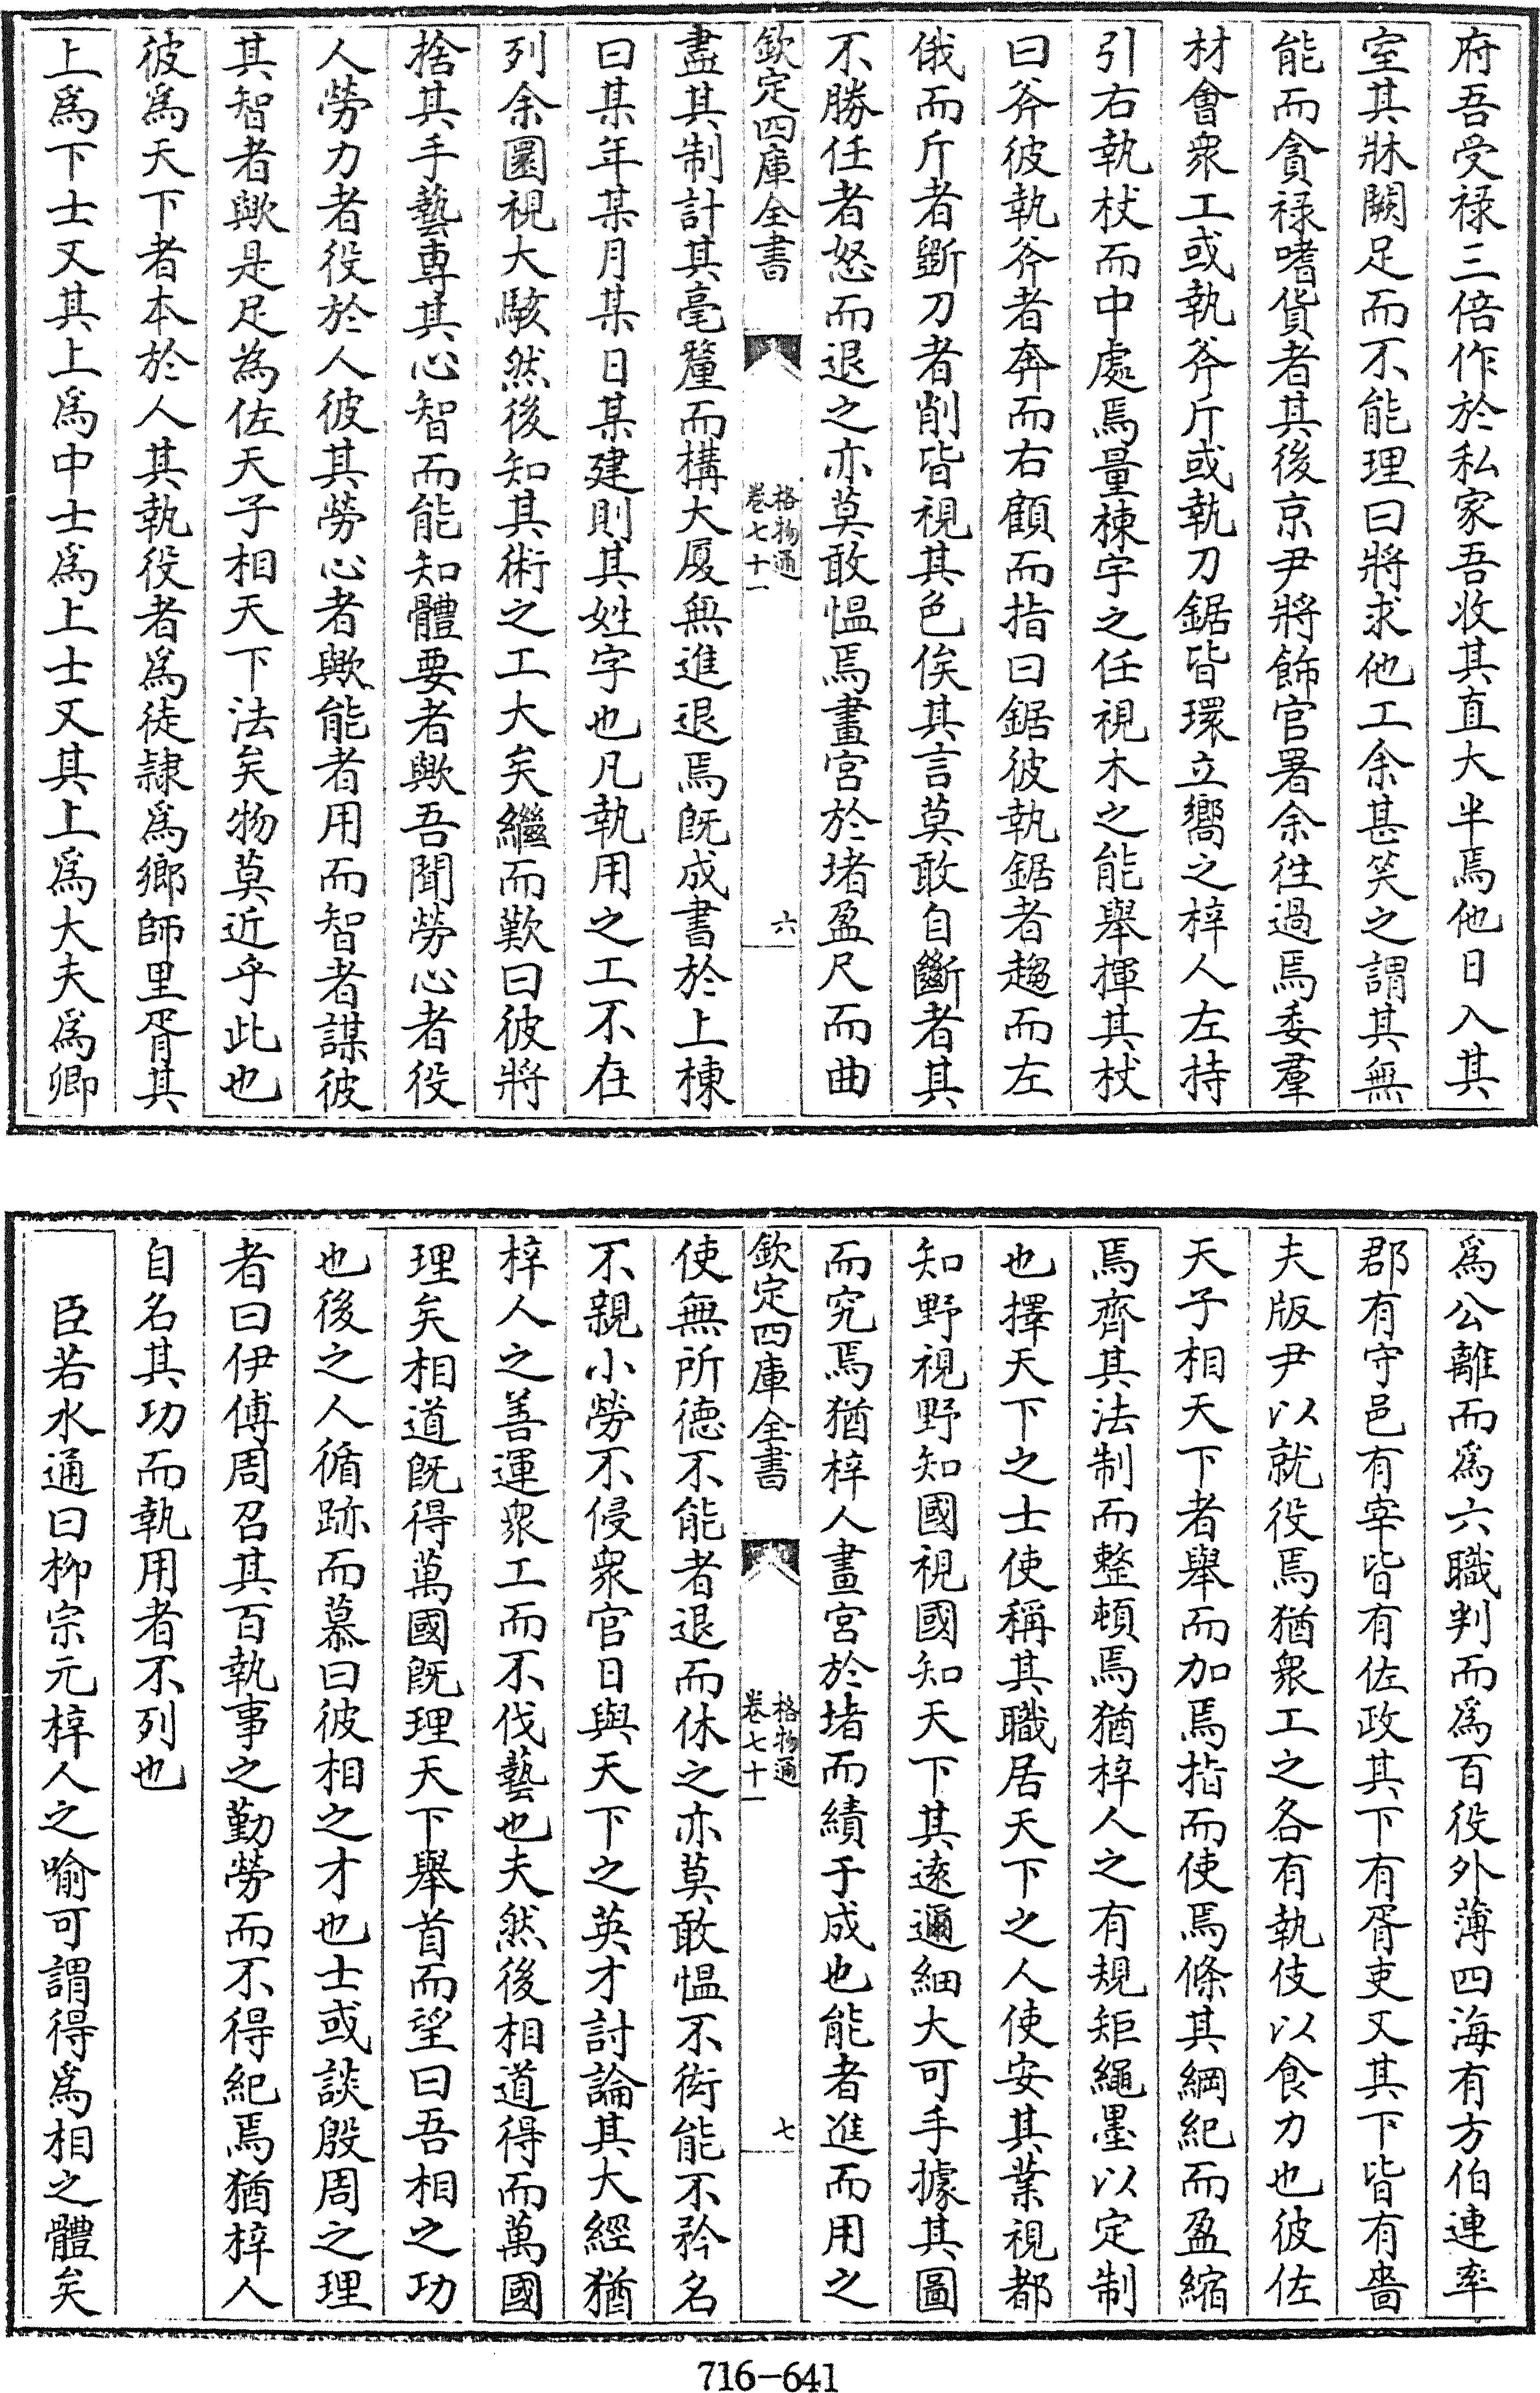 府吾受祿三倍作於私家吾收其直大半焉他日入其
室其牀闕足而不能理曰將求他工余甚笑之謂其無
能而貪祿嗜貨者其後京尹將飾官署余往過焉委羣
材會衆工或執斧斤或執刀鋸皆環立嚮之梓人左持
引右執杖而中處焉量棟宇之任視木之能舉揮其杖
曰斧彼執斧者奔而右顧而指曰鋸彼執鋸者趨而左
俄而斤者斲刀者削皆視其色俟其言莫敢自斷者其
不勝任者怒而退之亦莫敢慍焉畫宮於堵盈尺而曲
欽定四庫全書 格物通 卷七十一 六
盡其制計其毫釐而構大厦無進退焉既成書於上棟
曰某年某月某日某建則其姓字也凡執用之工不在
列余圜視大駭然後知其術之工大矣繼而歎曰彼將
捨其手藝專其心智而能知體要者歟吾聞勞心者役
人勞力者役於人彼其勞心者歟能者用而智者謀彼
其智者歟是足為佐天子相天下法矣物莫近乎此也
彼爲天下者本於人其執役者爲徒隷爲鄉師里胥其
上爲下士又其上爲中士爲上士又其上爲大夫爲卿
爲公離而爲六職判而爲百役外薄四海有方伯連率
郡有守邑有宰皆有佐政其下有胥吏又其下皆有嗇
夫版尹以就役焉猶衆工之各有執伎以食力也彼佐
天子相天下者舉而加焉指而使焉條其綱紀而盈縮
焉齊其法制而整頓焉猶梓人之有規矩繩墨以定制
也擇天下之士使稱其職居天下之人使安其業視都
知野視野知國視國知天下其遠邇細大可手據其圖
而究焉猶梓人畫宮於堵而績于成也能者進而用之
欽定四庫全書 格物通 卷七十一 七
使無所德不能者退而休之亦莫敢慍不衒能不矜名
不親小勞不侵衆官日與天下之英才討論其大經猶
梓人之善運衆工而不伐藝也夫然後相道得而萬國
理矣相道既得萬國既理天下舉首而望曰吾相之功
也後之人循跡而慕曰彼相之才也士或談殷周之理
者曰伊傅周召其百執事之勤勞而不得紀焉猶梓人
自名其功而執用者不列也
臣若水通曰柳宗元梓人之喻可謂得爲相之體矣
716-641